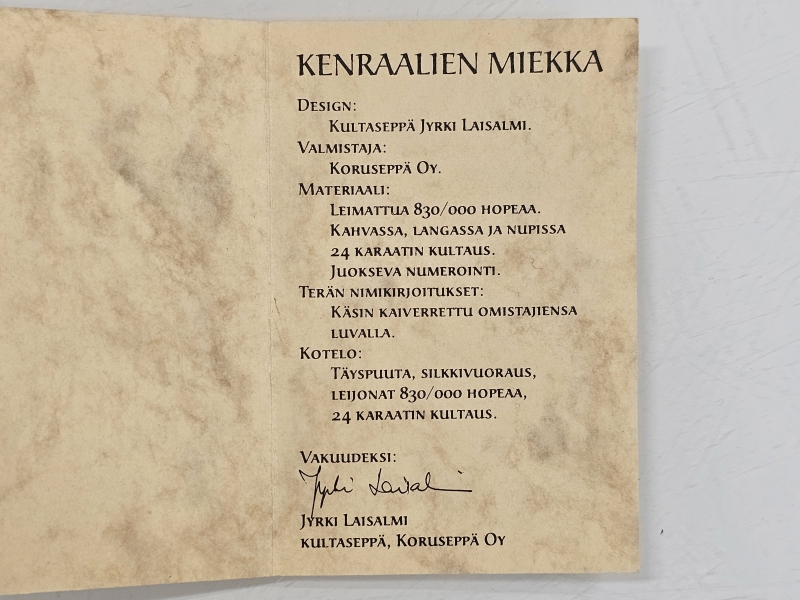 KENRAALIEN MIEKKA
DESIGN:
KULTASEPPÄ JYRKI LAISALMI.
VALMISTAJA:
KORUSEPPÄ OY.
MATERIAALI:
LEIMATTUA 830/000 HOPEAA.
KAHVASSA, LANGASSA JA NUPISSA
24 KARAATIN KULTAUS.
JUOKSEVA NUMEROINTI.
TERÄN NIMIKIRJOITUKSET:
KÄSIN KAIVERRETTU OMISTAJIENSA
LUVALLA.
KOTELO:
TÄYSPUUTA, SILKKIVUORAUS,
LEIJONAT 830/000 HOPEAA,
24 KARAATIN KULTAUS.
VAKUUDEKSI:
Jyrki Laisalmi
JYRKI LAISALMI
KULTASEPPÄ, KORUSEPPÄ OY